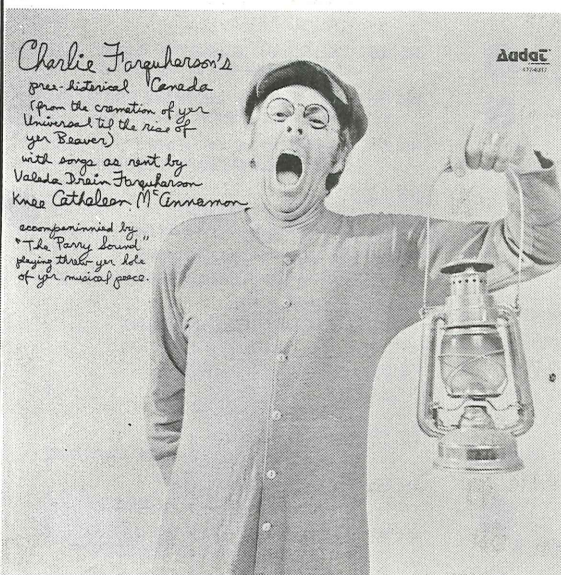 Charlie Farquharson's
pree-histerical Canada
(from the cremation of yer
Universal til the rise of
yer Beaver)
with songs as rent by
Valeda Drain Farquharson
Knee Cathaleen McAnnamon
accompaninnied by
"The Parry Sound"
playing threw yer hole
of yer musical peece.
Audat